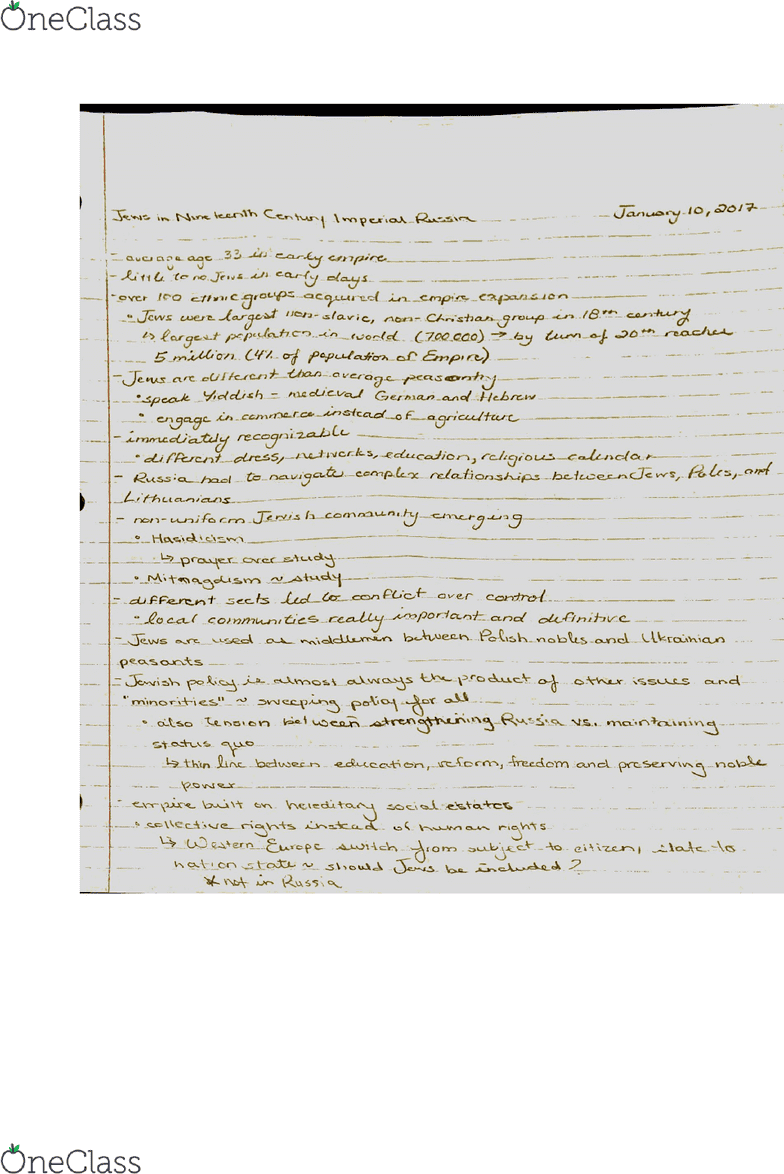 OneClass
Jews in Nineteenth Century Imperial Russia January 10, 2017
- average age 33 in early empire
- little to no Jews in early days
- over 100 ethnic groups acquired in empire expansion
• Jews were largest non-slavic, non-Christian group in 18th century
↳ largest population in world (700,000) → by turn of 20th reaches
5 million (4% of population of Empire)
- Jews are different than average peasantry
• speak Yiddish - medieval German and Hebrew
• engage in commerce instead of agriculture
- immediately recognizable
• different dress, networks, education, religious calendar
- Russia had to navigate complex relationships between Jews, Poles, and
Lithuanians
- non-uniform Jewish community emerging
• Hasidicism
↳ prayer over study
• Mitnagdism ~ study
- different sects led to conflict over control
• local communities really important and definitive
- Jews are used as middlemen between Polish nobles and Ukrainian
peasants
- Jewish policy is almost always the product of other issues and
"minorities" ~ sweeping policy for all
• also tension between strengthening Russia vs. maintaining
status quo
↳ thin line between education, reform, freedom and preserving noble
power
- empire built on hereditary social estates
• collective rights instead of human rights
↳ Western Europe switch from subject to citizen, state to
nation state ~ should Jews be included?
* not in Russia
OneClass